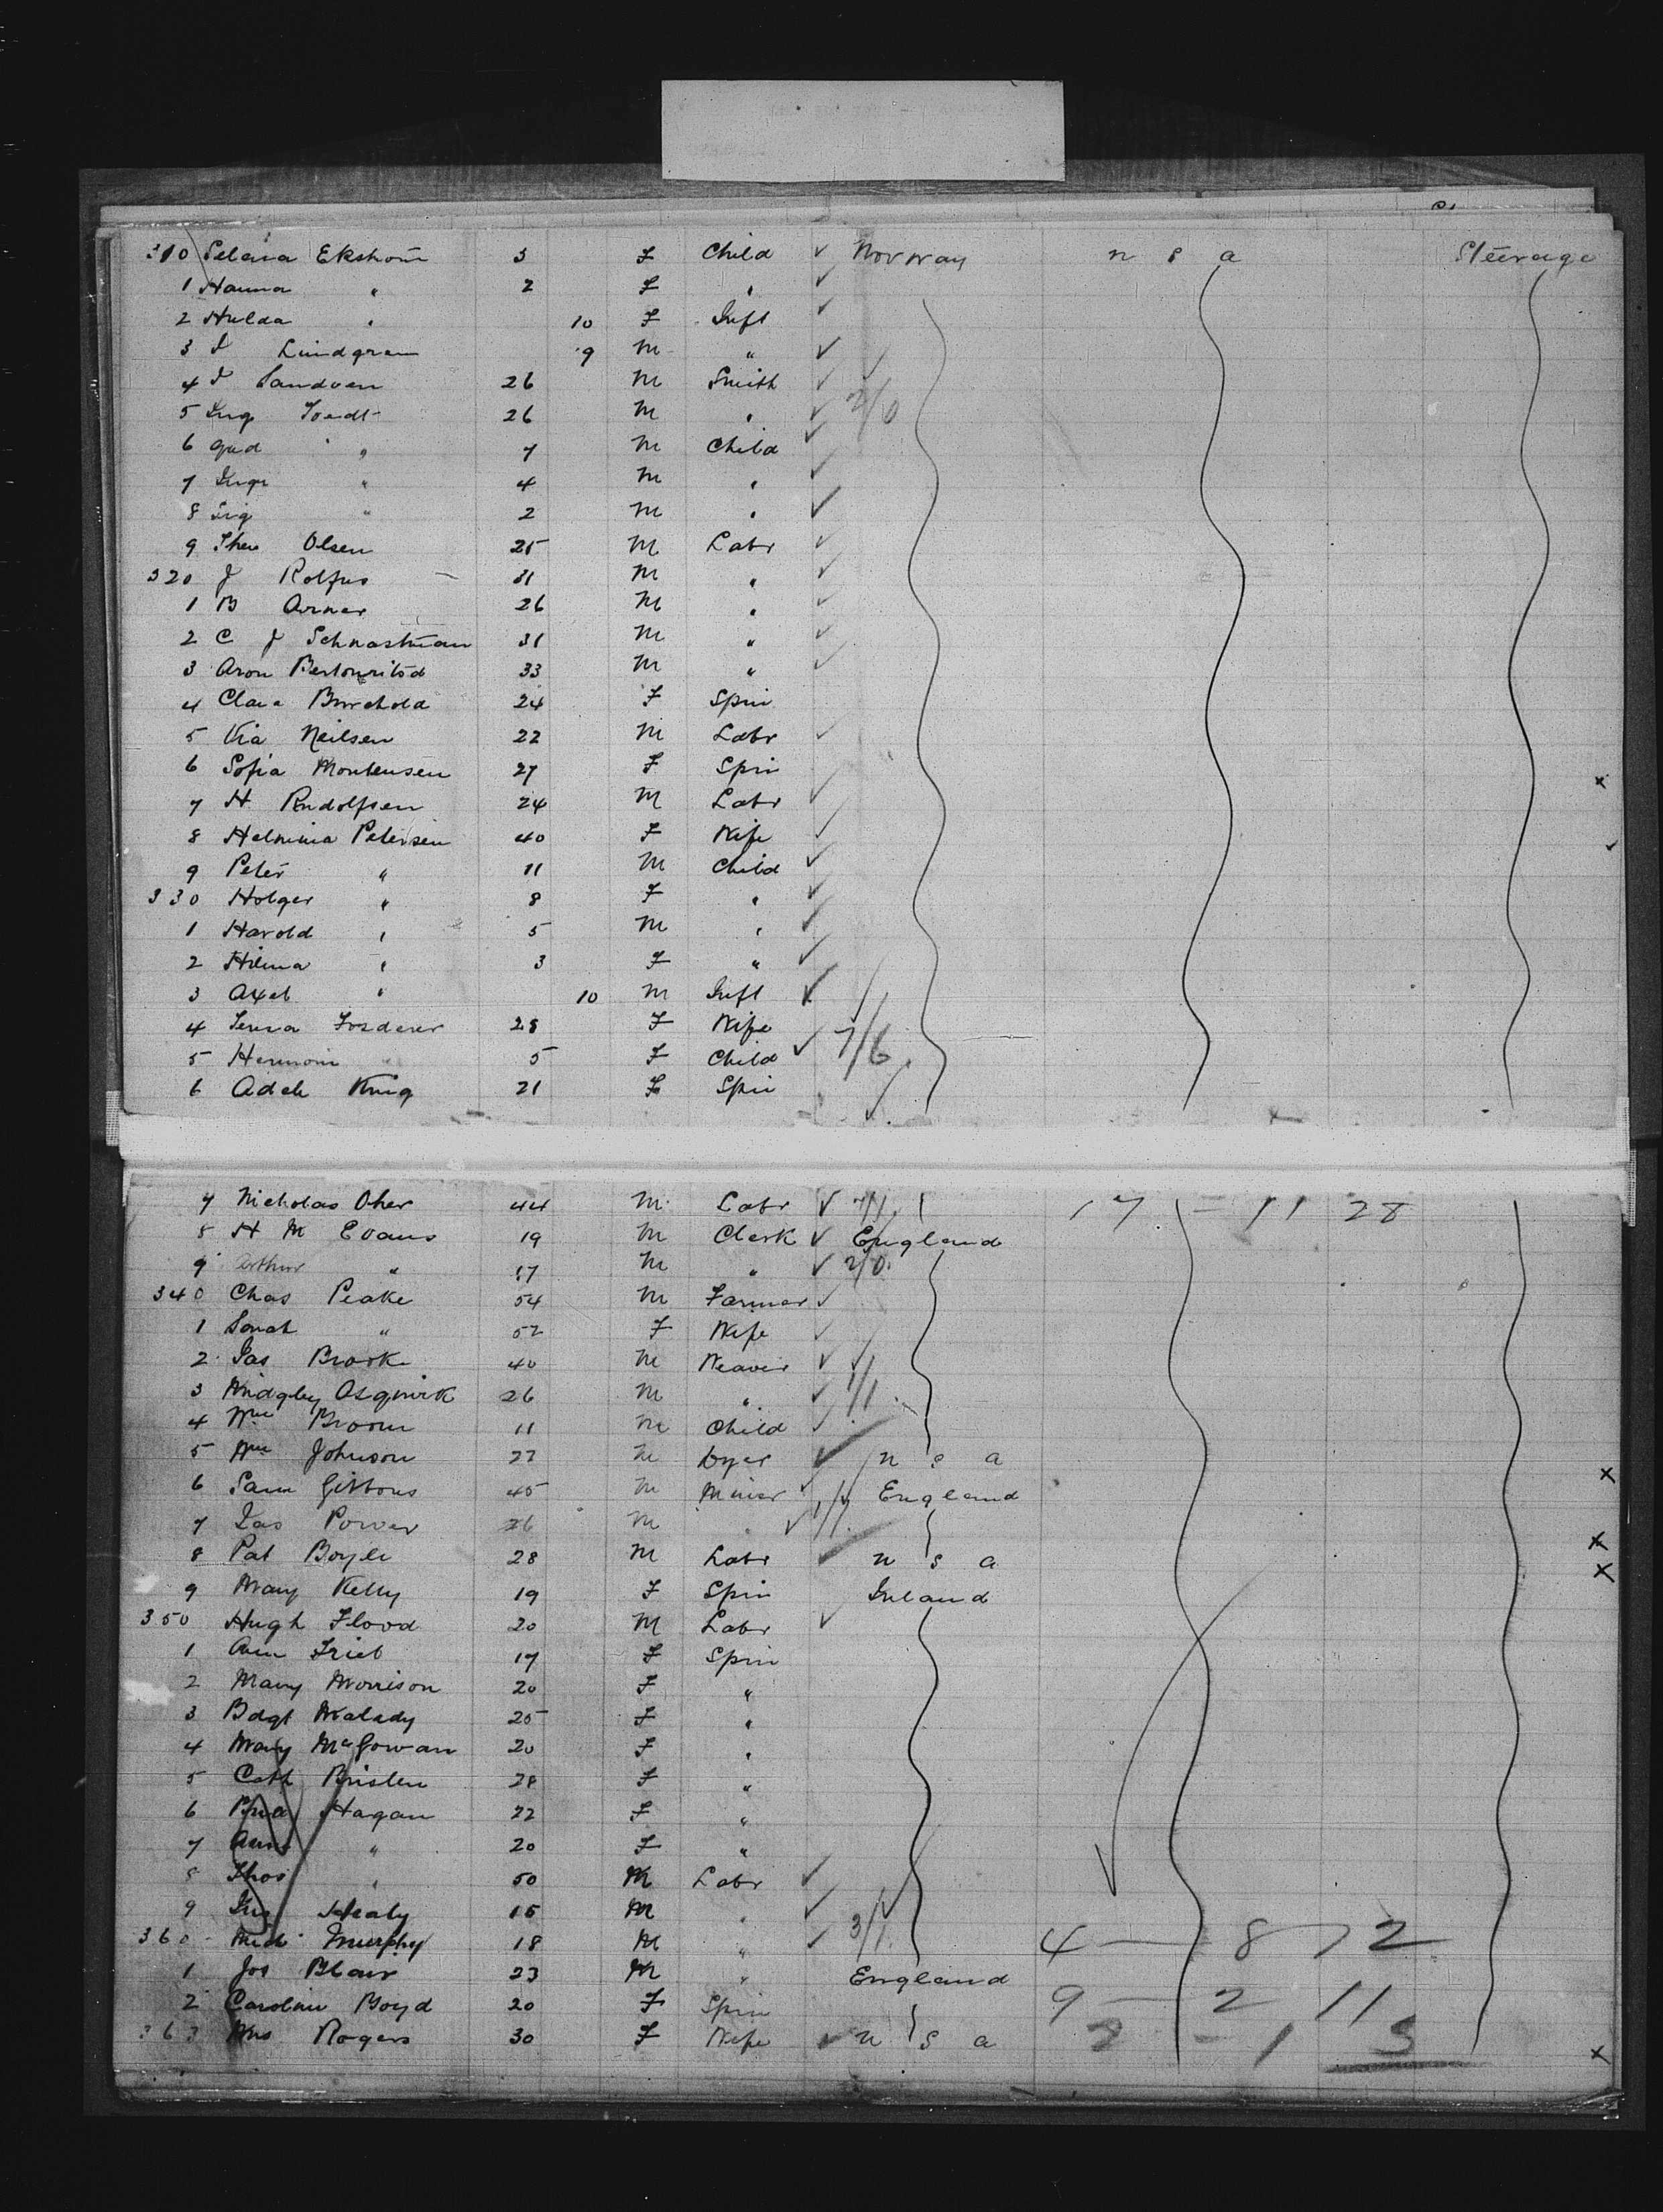 310 Selma Ekstrom 3 F Child ✓ Norway n s a Steerage
1 Hanna " 2 F " ✓
2 Hulda " 10 F Inft ✓
3 J Lindgren 9 M " ✓
4 J Sandven 26 M Smith ✓
5 Ing Toedt 26 M " ✓ 2/0
6 Gud " 7 M Child ✓
7 Inge " 4 M " ✓
8 Sig " 2 M " ✓
9 Theo Olsen 25 M Labr ✓
320 J Rolfus 31 M " ✓
1 B Arner 26 M " ✓
2 C J 31 M " ✓
3 Aron 33 M " ✓
4 Clara Burchold 24 F Spin
5 Kia Neilsen 22 M Labr ✓
6 Sofia Mortensen 27 F Spin x
7 H Rudolfsen 24 M Labr ✓
8 Helmina Petersen 40 F Wife ✓
9 Peter " 11 M Child ✓
330 Holger " 8 F " ✓
1 Harold " 5 M " ✓
2 Hilma " 3 F " ✓
3 Axel " 10 M Inft ✓
4 Fosderer 28 F Wife
5 Hermoin " 5 F Child ✓ 7/6
6 Adele King 21 F Spin ✓
7 Nicholas Oher 44 M Labr ✓ 7/1 17 - 11 28
8 H M Evans 19 M Clerk ✓ England
9 Arthur " 17 M " ✓ 2/0
340 Chas Peake 54 M Farmer ✓
1 Sarah " 52 F Wife ✓
2 Jas Brook 40 M Weaver ✓
3 Midgley Asquirk 26 M " ✓ 1/1
4 Wm Broom 11 M Child ✓
5 Wm Johnson 22 M Dyer ✓ n s a
6 Sam Gibbons 45 M Miner ✓ England x
7 Jas Power 26 M " ✓ 1/1
8 Pat Boyle 28 M Labr ✓ n s a x
9 Mary Kelly 19 F Spin Ireland x
350 Hugh Flood 20 M Labr ✓
1 Ann Frieb 17 F Spin
2 Mary Morrison 20 F "
3 Bdgt Malady 25 F "
4 Mary McGowan 20 F "
5 Cath Brislen 28 F "
6 Hagan 22 F "
7 Anne " 20 F "
8 Thos " 50 M Labr ✓
9 Healy 15 M " ✓
360 Mich Murphy 18 M " ✓ 3/1 4 - 8 12
1 Jos Blair 23 M " England
2 Caroline Boyd 20 F Spin 9 - 2 11
363 Mrs Rogers 30 F Wife ✓ n s a 2 - 1 3 x